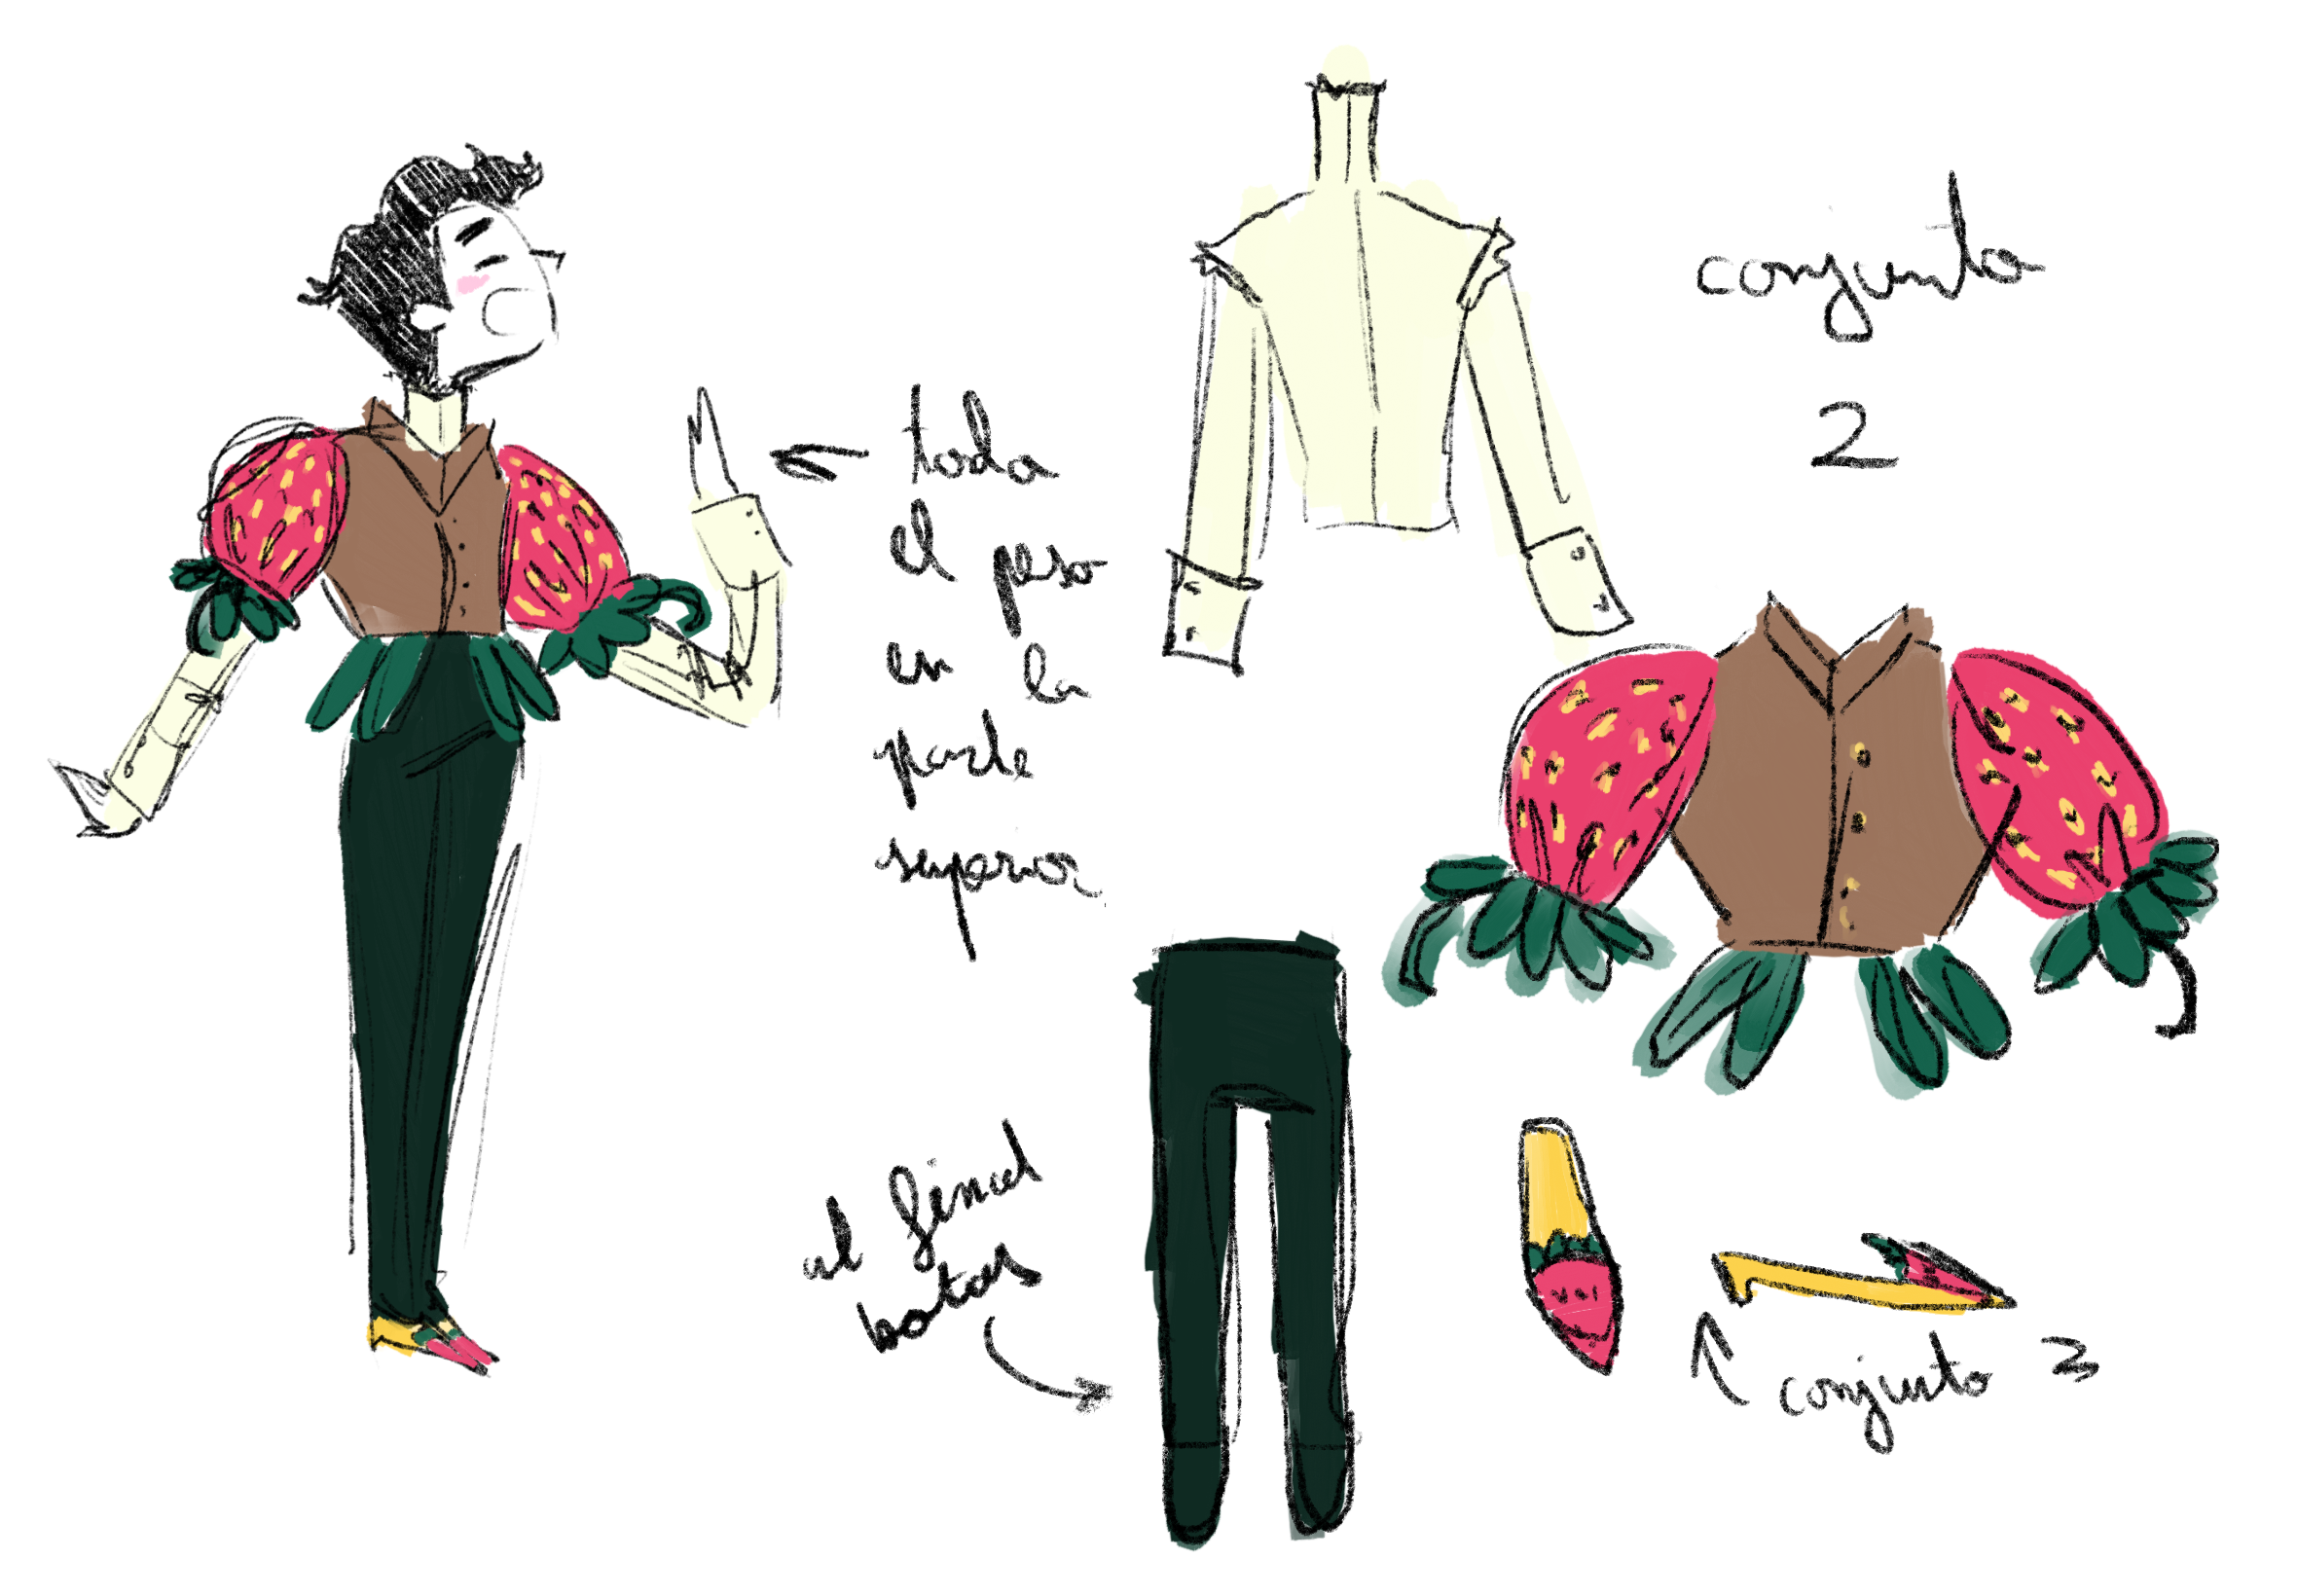 conjunto
2
toda
el peso
en la
parte
superior
al final
botas
conjunto 3